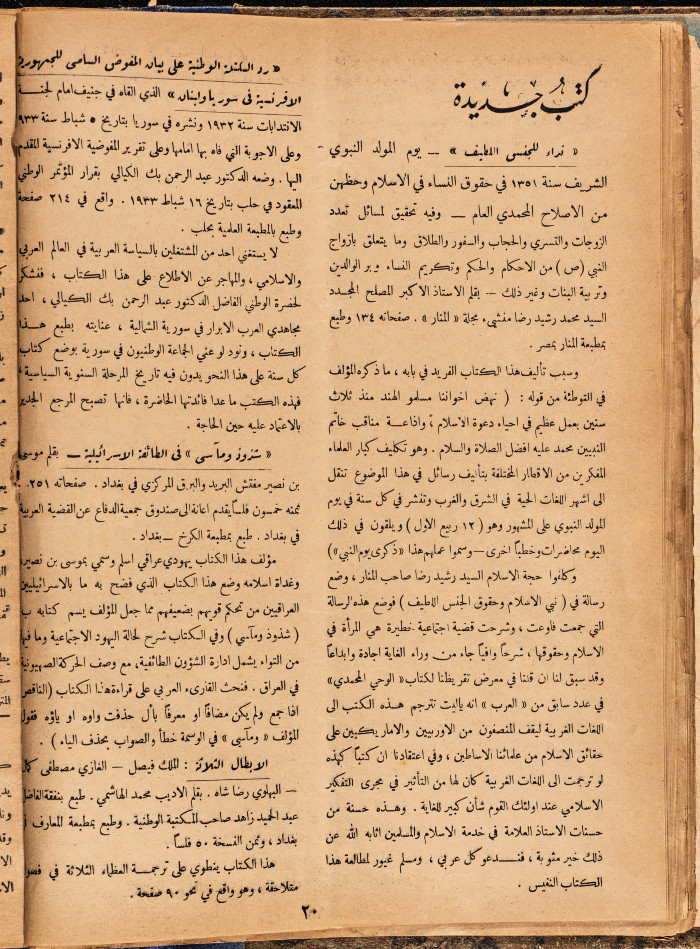 كتب جديدة
« نداء للجنس اللطيف » — يوم المولد النبوي
الشريف سنة ١٣٥١ في حقوق النساء في الاسلام وحظهن
من الاصلاح المحمدي العام — وفيه تحقيق لمسائل تعدد
الزوجات والتسري والحجاب والسفور والطلاق وما يتعلق بازواج
النبي (ص) من الاحكام والحكم وتكريم النساء وبر الوالدين
وتربية البنات وغير ذلك — بقلم الاستاذ الاكبر المصلح المجدد
السيد محمد رشيد رضا منشىء مجلة « المنار » . صفحاته ١٣٤ وطبع
بمطبعة المنار بمصر .
وسبب تأليف هذا الكتاب الفريد في بابه ، ما ذكره المؤلف
في التوطئة من قوله : ( نهض اخواننا مسلمو الهند منذ ثلاث
سنين بعمل عظيم في احياء دعوة الاسلام ، واذاعة مناقب خاتم
النبيين محمد عليه افضل الصلاة والسلام . وهو تكليف كبار العلماء
المفكرين من الاقطار المختلفة بتأليف رسائل في هذا الموضوع تنقل
الى اشهر اللغات الحية في الشرق والغرب وتنشر في كل سنة في يوم
المولد النبوي على المشهور وهو ( ١٢ ربيع الاول ) ويلقون في ذلك
اليوم محاضرات وخطباً اخرى — وسموا عملهم هذا « ذكرى يوم النبي » )
وكلفوا حجة الاسلام السيد رشيد رضا صاحب المنار ، وضع
رسالة في ( نبي الاسلام وحقوق الجنس اللطيف ) فوضع هذه الرسالة
التي جمعت فاوعت ، وشرحت قضية اجتماعية خطيرة هي المرأة في
الاسلام وحقوقها ، شرحاً وافياً جاء من وراء الغاية اجادة وابداعاً
وقد سبق لنا ان قلنا في معرض تقريظنا لكتاب « الوحي المحمدي »
في عدد سابق من « العرب » انه ياليت تترجم هذه الكتب الى
اللغات الغربية ليقف المنصفون من الاوربيين والاميركيين على
حقائق الاسلام من علمائنا الاساطين ، وفي اعتقادنا ان كتباً كهذه
لو ترجمت الى اللغات الغربية كان لها من التأثير في مجرى التفكير
الاسلامي عند اولئك القوم شأن كبير للغاية . وهذه حسنة من
حسنات الاستاذ العلامة في خدمة الاسلام والمسلمين اثابه الله عن
ذلك خير مثوبة ، فندعو كل عربي ، ومسلم غيور لمطالعة هذا
الكتاب النفيس .
« رد الكتلة الوطنية على بيان المفوض السامى للجمهورية
الافرنسية فى سوريا ولبنان » الذي القاه في جنيف امام لجنة
الانتدابات سنة ١٩٣٢ ونشره في سوريا بتاريخ ٥ شباط سنة ٩٣٣
وعلى الاجوبة التي فاه بها امامها وعلى تقرير المفوضية الافرنسية المقدم
اليها . وضعه الدكتور عبد الرحمن بك الكيالي بقرار المؤتمر الوطني
المعقود في حلب بتاريخ ١٦ شباط ١٩٣٣ . واقع في ٢١٤ صفحة
وطبع بالمطبعة العلمية بحلب .
لا يستغني احد من المشتغلين بالسياسة العربية في العالم العربي
والاسلامي ، والمهاجر عن الاطلاع على هذا الكتاب ، فنشكر
لحضرة الوطني الفاضل الدكتور عبد الرحمن بك الكيالي ، احد
مجاهدي العرب الابرار في سورية الشمالية ، عنايته بطبع هذا
الكتاب ، ونود لو عني الجماعة الوطنيون في سورية بوضع كتاب
كل سنة على هذا النحو يدون فيه تاريخ المرحلة السنوية السياسية ،
فهذه الكتب ما عدا فائدتها الحاضرة ، فانها تصبح المرجع الجدير
بالاعتماد عليه حين الحاجة .
« شذوذ ومآسى » فى الطائفة الاسرائيلية — بقلم موسى
بن نصير مفتش البريد والبرق المركزي في بغداد . صفحاته ٢٥١ .
ثمنه خمسون فلساً يقدم اعانة الى صندوق جمعية الدفاع عن القضية العربية
في بغداد . طبع بمطبعة الكرخ — بغداد .
مؤلف هذا الكتاب يهودي عراقي اسلم وسمي بموسى بن نصير ،
وغداة اسلامه وضع هذا الكتاب الذي فضح به ما بالاسرائيليين
العراقيين من تحكم قويهم بضعيفهم مما جعل المؤلف يسم كتابه ب
( شذوذ ومآسي ) وفي الكتاب شرح لحالة اليهود الاجتماعية وما فيها
من التواء يشمل ادارة الشؤون الطائفية ، مع وصف الحركة الصهيونية
في العراق . فنحث القارىء العربي على قراءة هذا الكتاب ( الناقص
اذا جمع ولم يكن مضافاً او معرفاً بأل حذفت واوه او ياؤه فقول
المؤلف « ومآسي » في الوسمة خطأ والصواب بحذف الياء ) .
الابطال الثلاثة : الملك فيصل — الغازي مصطفى كمال
— البهلوي رضا شاه . بقلم الاديب محمد الهاشمي . طبع بنفقة الفاضل
عبد الحميد زاهد صاحب المكتبة الوطنية . وطبع بمطبعة المعارف
بغداد ، وثمن النسخة ٥٠ فلساً .
هذا الكتاب ينطوي على ترجمة العظماء الثلاثة في فصول
متلاحقة ، وهو واقع في نحو ٩٠ صفحة .
٢٠